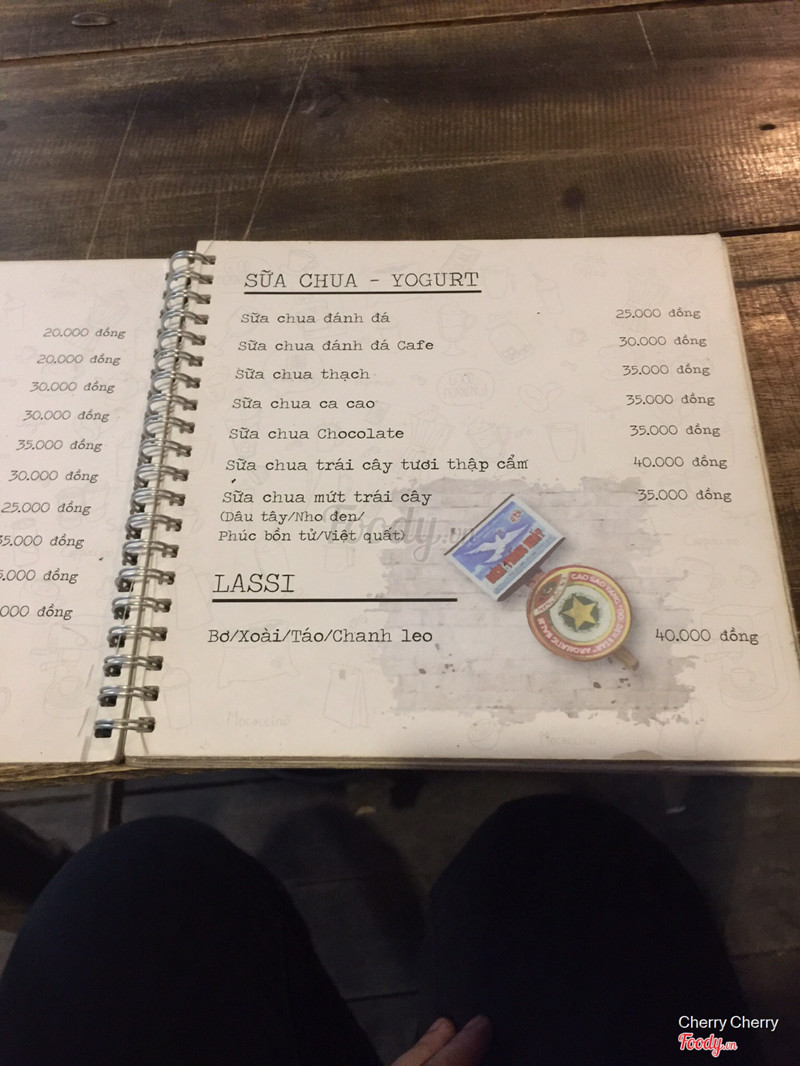 20.000 đồng
20.000 đồng
30.000 đồng
30.000 đồng
35.000 đồng
30.000 đồng
25.000 đồng
35.000 đồng
5.000 đồng
000 đồng
SỮA CHUA - YOGURT
Sữa chua đánh đá 25.000 đồng
Sữa chua đánh đá Cafe 30.000 đồng
Sữa chua thạch 35.000 đồng
Sữa chua ca cao 35.000 đồng
Sữa chua Chocolate 35.000 đồng
Sữa chua trái cây tươi thập cẩm 40.000 đồng
Sữa chua mứt trái cây 35.000 đồng
(Dâu tây/Nho đen/
Phúc bồn tử/Việt quất)
Foody.vn
LASSI
Bơ/Xoài/Táo/Chanh leo 40.000 đồng
Mocaccino
Mocaccino
Cherry Cherry
Foody.vn